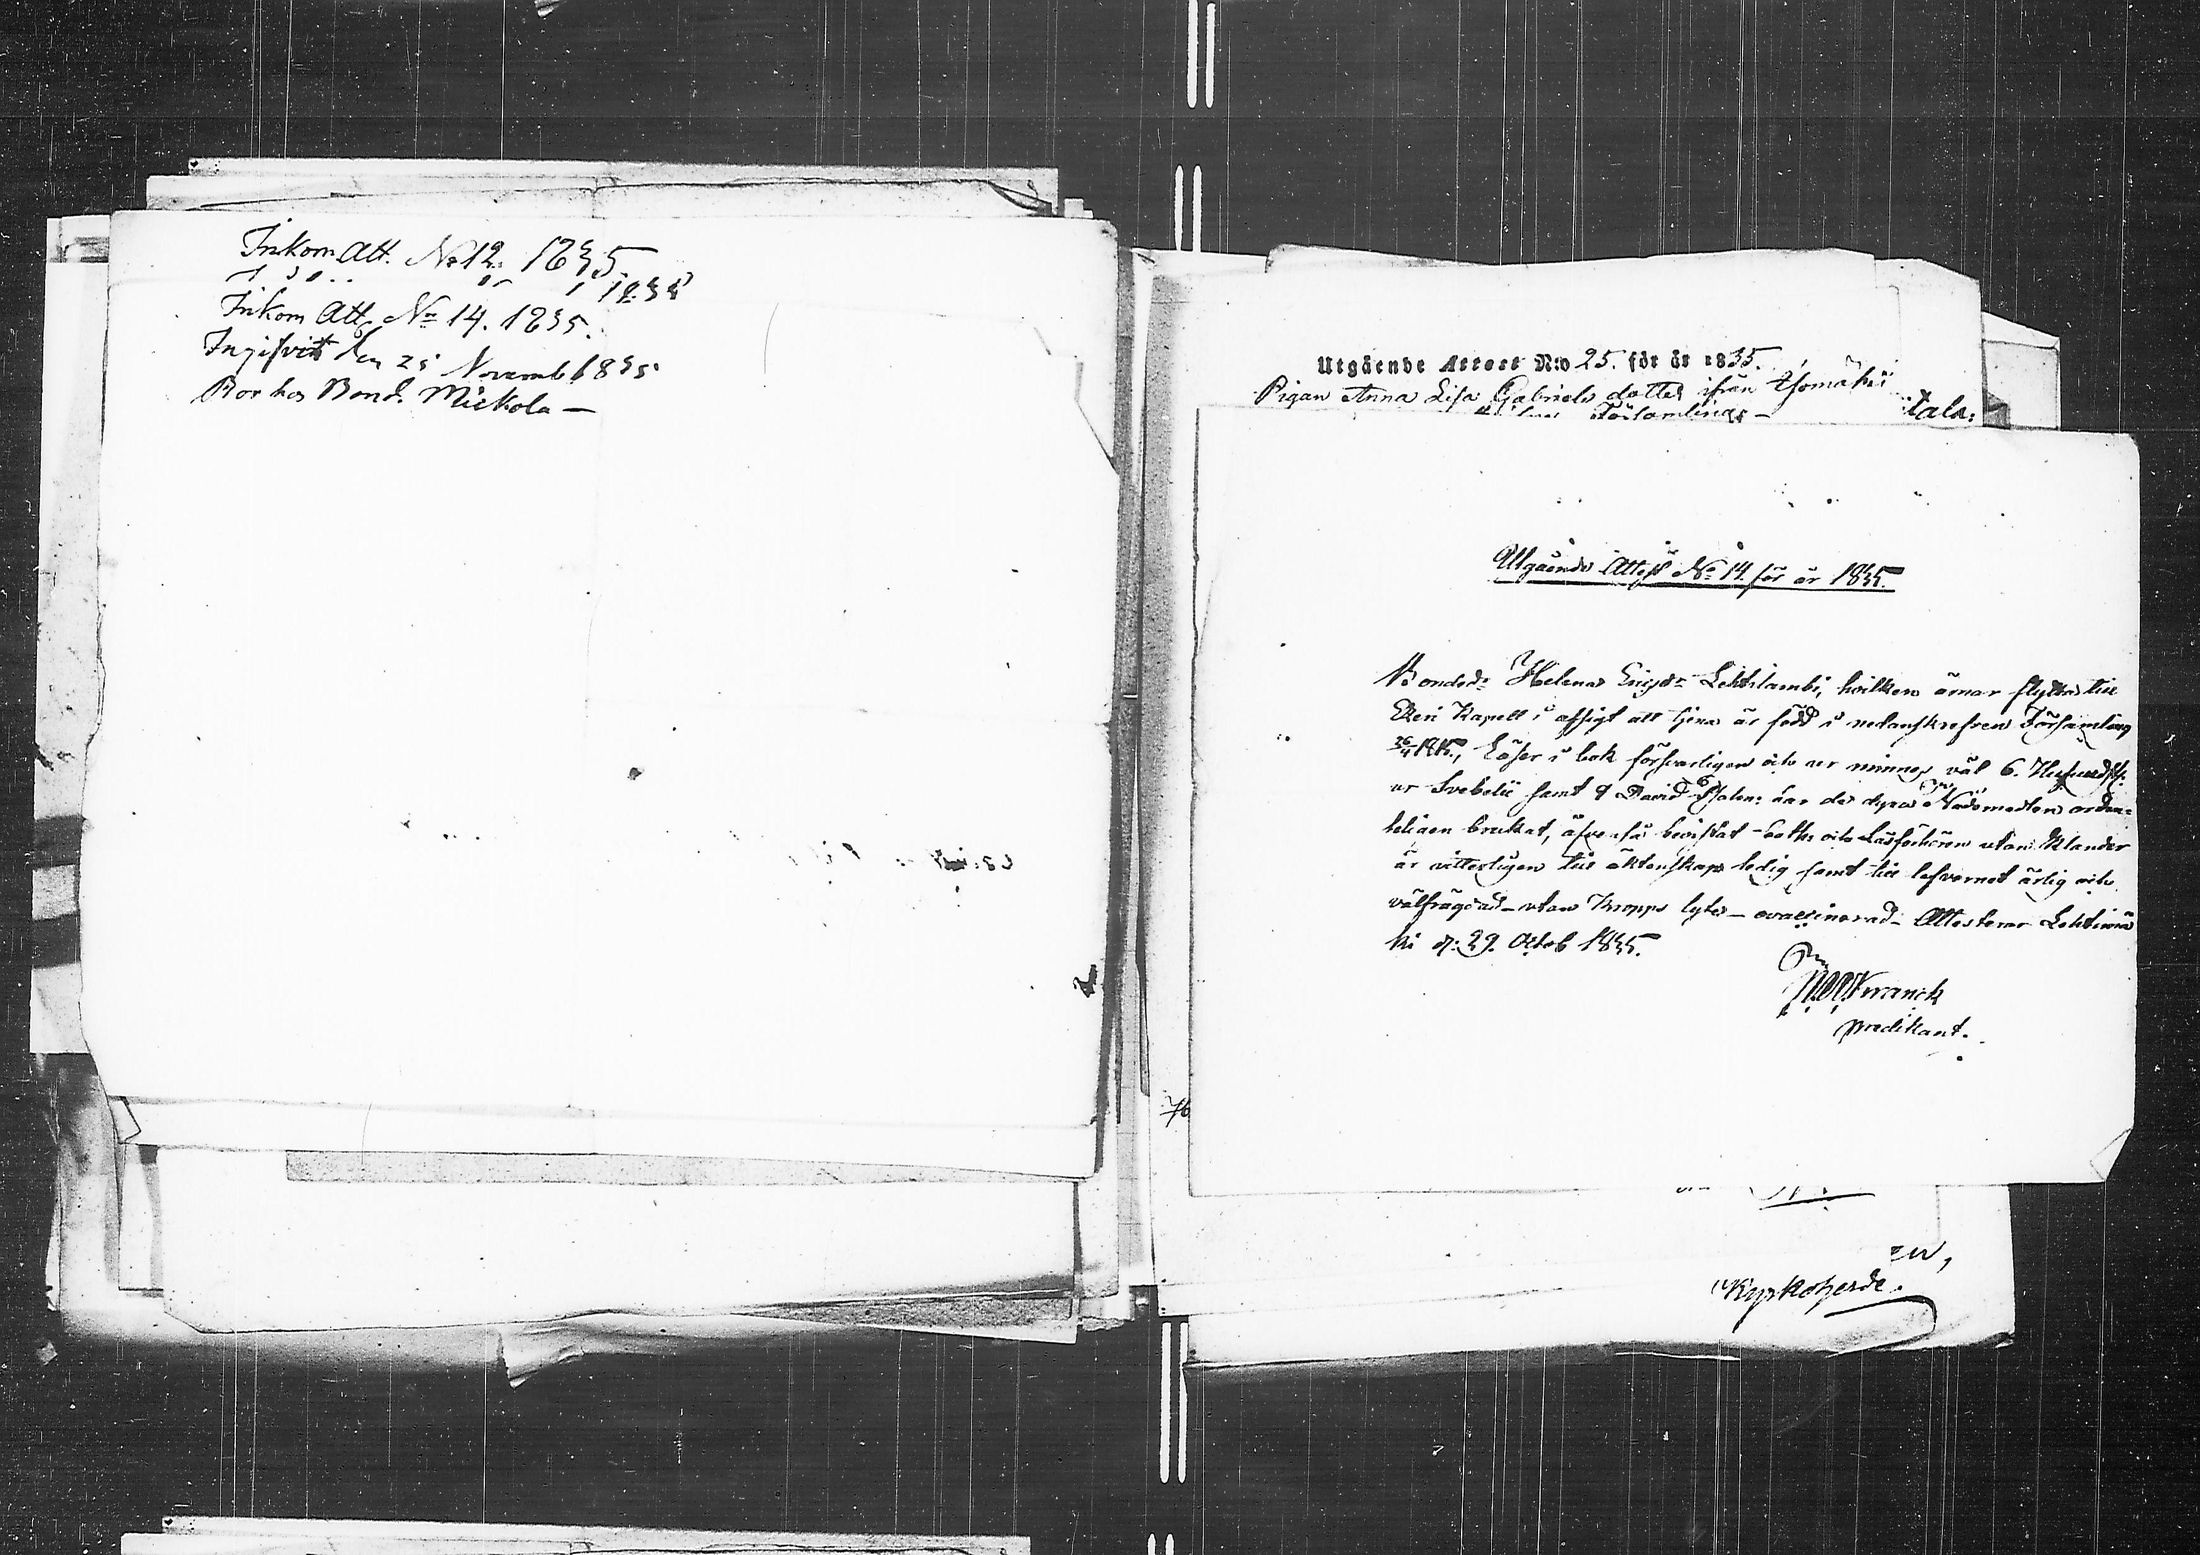 Inkom Att. No 12. 1835
1835
Inkom Att No 14. 1835.
Ingifvit den 25 Novemb 1835
Bor hos Bond. Mickola —
Utgående Attest N:o 25. för år 1835.
Pigan Anna Lisa Gabriels dotter ifrån
Församling —
tala:
Utgående Attest No 14. för år 1835.
Bonded: Helena Ericsdr Lehtilambi, hvilken ämnar flytta till
Kapell i afsigt att tjena är född i nedanskrefven Församling
26/4 1815, Läser i bok försvarligen och ur minnet väl 6. Hufvudst:
ur Svebelii samt 6 Davids Psalm: har de dyra Nådemedlen orden=
teligen brukat, äfvenså bevistat both och Läsförhören utan klander
är vitterligen till äktenskap ledig samt till lefvernet ärlig och
välfrägdad — utan kropps lyte — ovaccinerad — Attesterar Lehtimä
ki d: 29. Octob 1835.
Wranck
predikant.
76
Kyrkoherde.